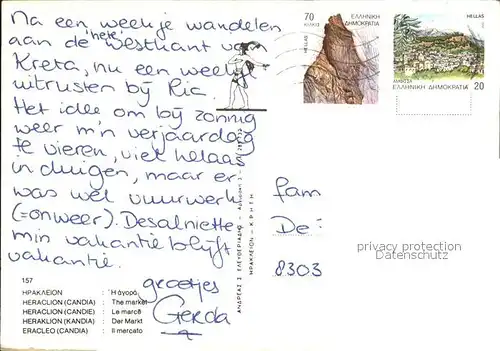 Na een weekje wandelen
aan de hete westkant van
Kreta, nu een weekje
uitrusten bij Ria.
Het idee om bij zonnig
weer m'n verjaardag
te vieren, viel helaas
in duigen, maar er
was wel vuurwerk
(=onweer). Desalniette-
min vakantie blijft
vakantie.
groetjes
Gerda
70
ΕΛΛΗΝΙΚΗ
ΔΗΜΟΚΡΑΤΙΑ
HELLAS
HELLAS
ΑΜΦΙΣΣΑ
ΕΛΛΗΝΙΚΗ ΔΗΜΟΚΡΑΤΙΑ 20
fam
De
8303
privacy protection
for AnsichtskartenVersand.com
ΑΝΔΡΕΑΣ Σ. ΕΛΕΥΘΕΡΙΑΔΗΣ
ΗΡΑΚΛΕΙΟΝ - ΚΡΗΤΗ
157
ΗΡΑΚΛΕΙΟΝ : Ἡ ἀγορά
HERACLION (CANDIA) : The market
HERACLION (CANDIE) : Le marcé
HERAKLION (KANDIA) : Der Markt
ERACLEO (CANDIA) : Il mercato